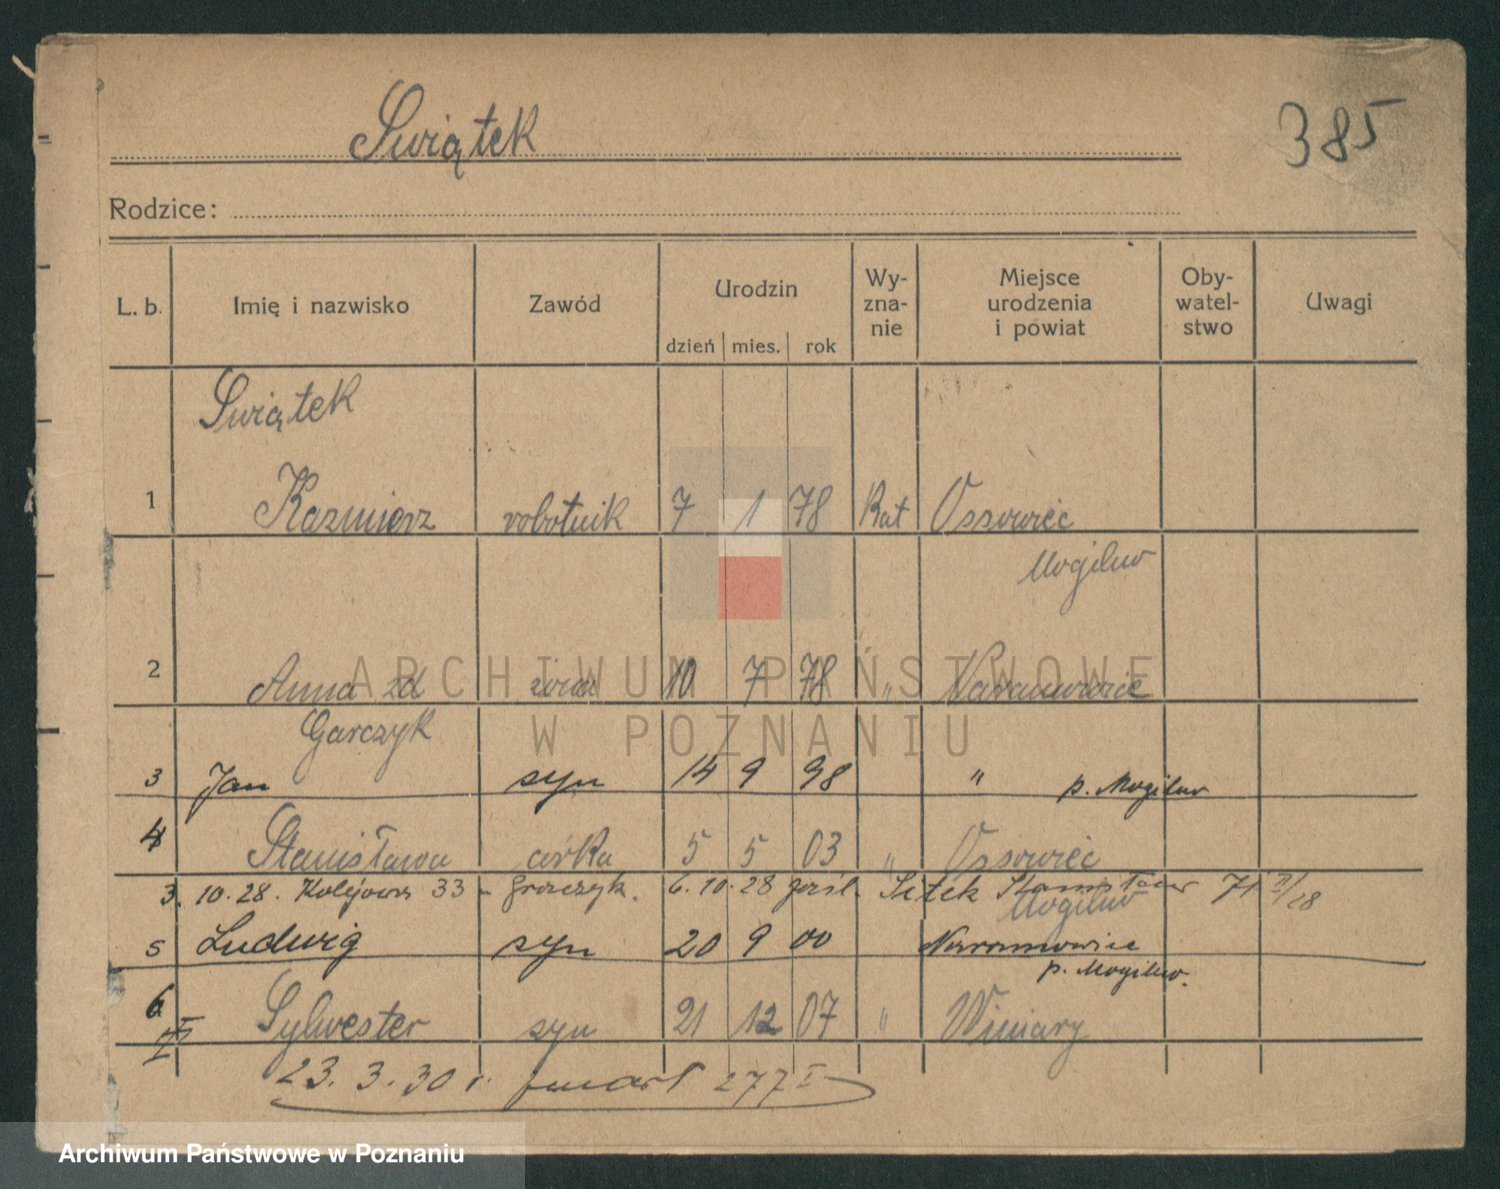 Swiątek
385
Rodzice:
L. b. Imię i nazwisko Zawód Urodzin dzień mies. rok Wy-zna-nie Miejsce urodzenia i powiat Oby-watel-stwo Uwagi
Swiątek
1 Kazmierz robotnik 7 1 78 Kat Ossowiec
Mogilno
2 Anna zd żona 10 7 78 "
ARCHIWUM PAŃSTWOWE
W POZNANIU
Garczyk
3 Jan syn 14 9 98 " p. Mogilno
4 Stanisława córka 5 5 03 " Ossowiec
3. 10. 28. Kolejowa 33 - 6. 10. 28 Stanisław 71
Mogilno
5 Ludwig syn 20 9 00 Naramowice
p. Mogilno.
6 Sylwester syn 21 12 07 " Winiary
23. 3. 30 r. zmarł 277 I
Archiwum Państwowe w Poznaniu